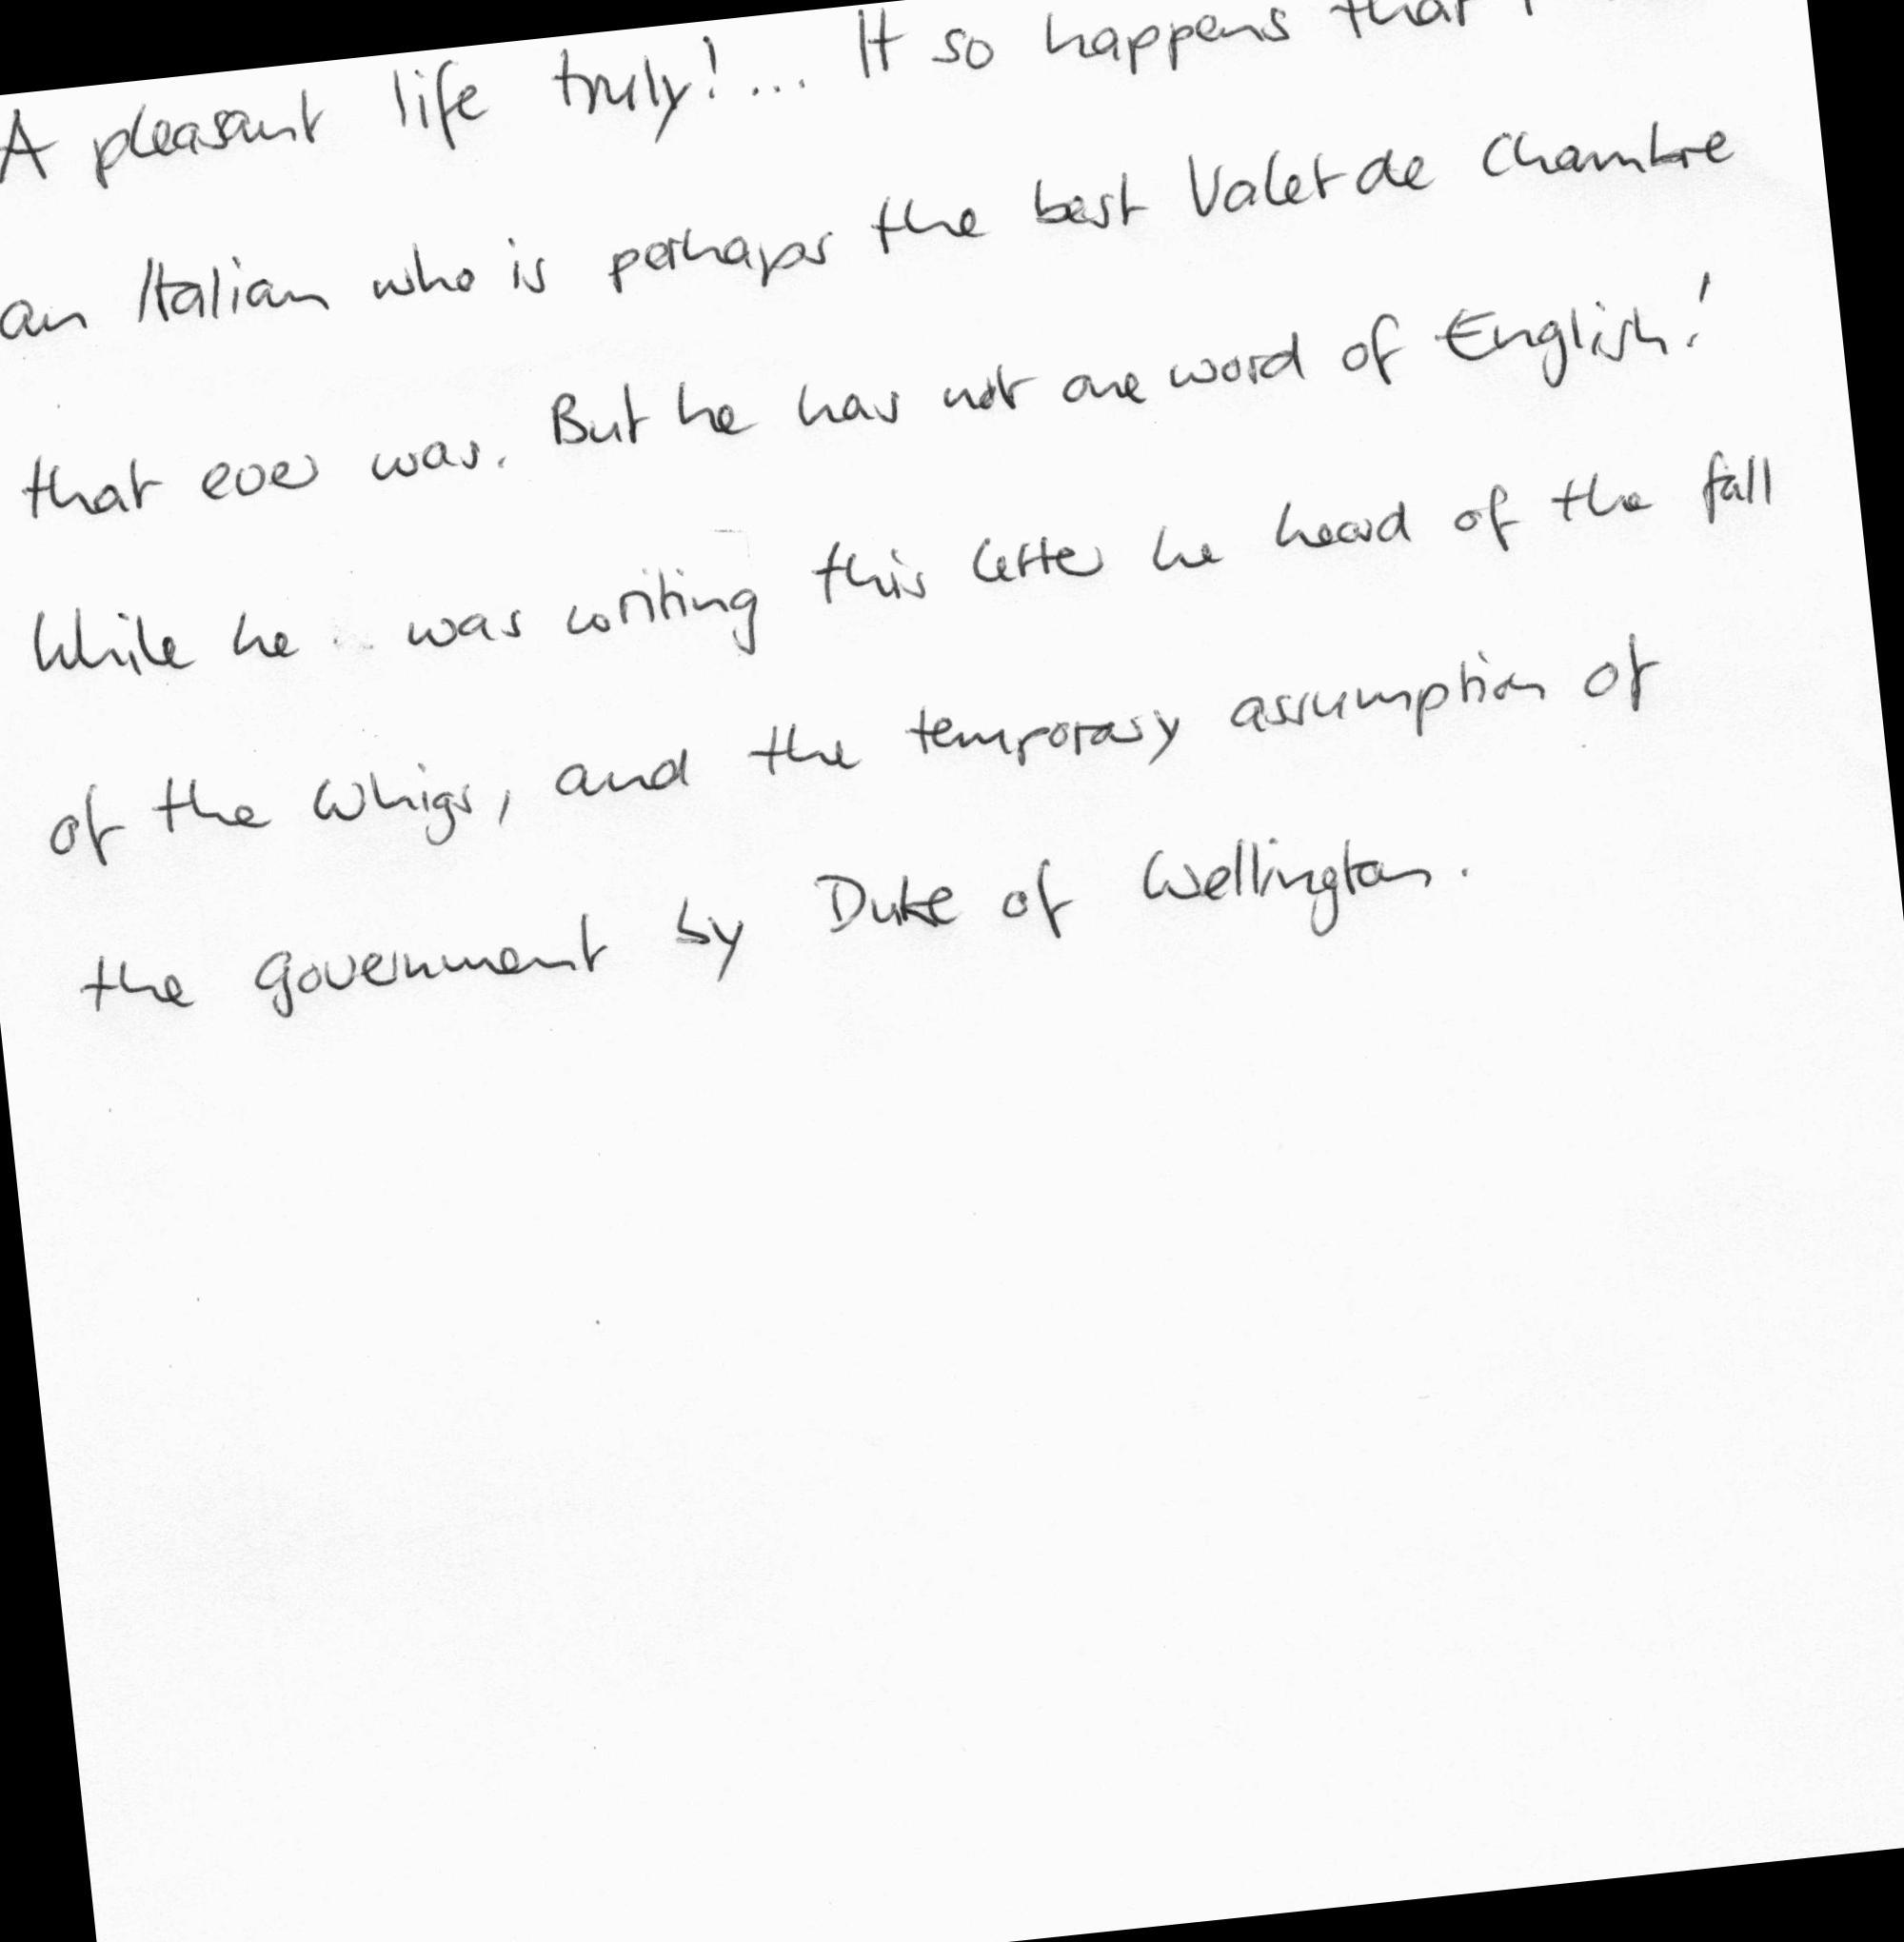 A pleasant life truly!... It so happens that
an Italian who is perhaps the best Valet de Chambre
that ever was. But he has not one word of English!
While he was writing this letter he heard of the fall
of the Whigs, and the temporary assumption of
the government by Duke of Wellington.